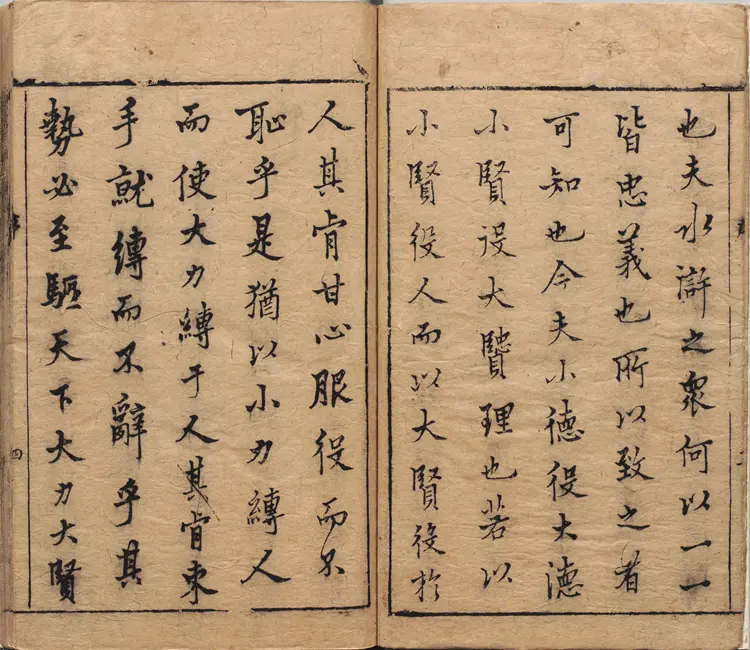 也夫水滸之衆何以一一
皆忠義也所以致之者
可知也今夫小德役大德
小賢役大賢理也若以
小賢役人而以大賢役於
人其肯甘心服役而不
恥乎是猶以小力縛人
而使大力縛于人其肯束
手就縛而不辭乎其
勢必至驅天下大力大賢
四